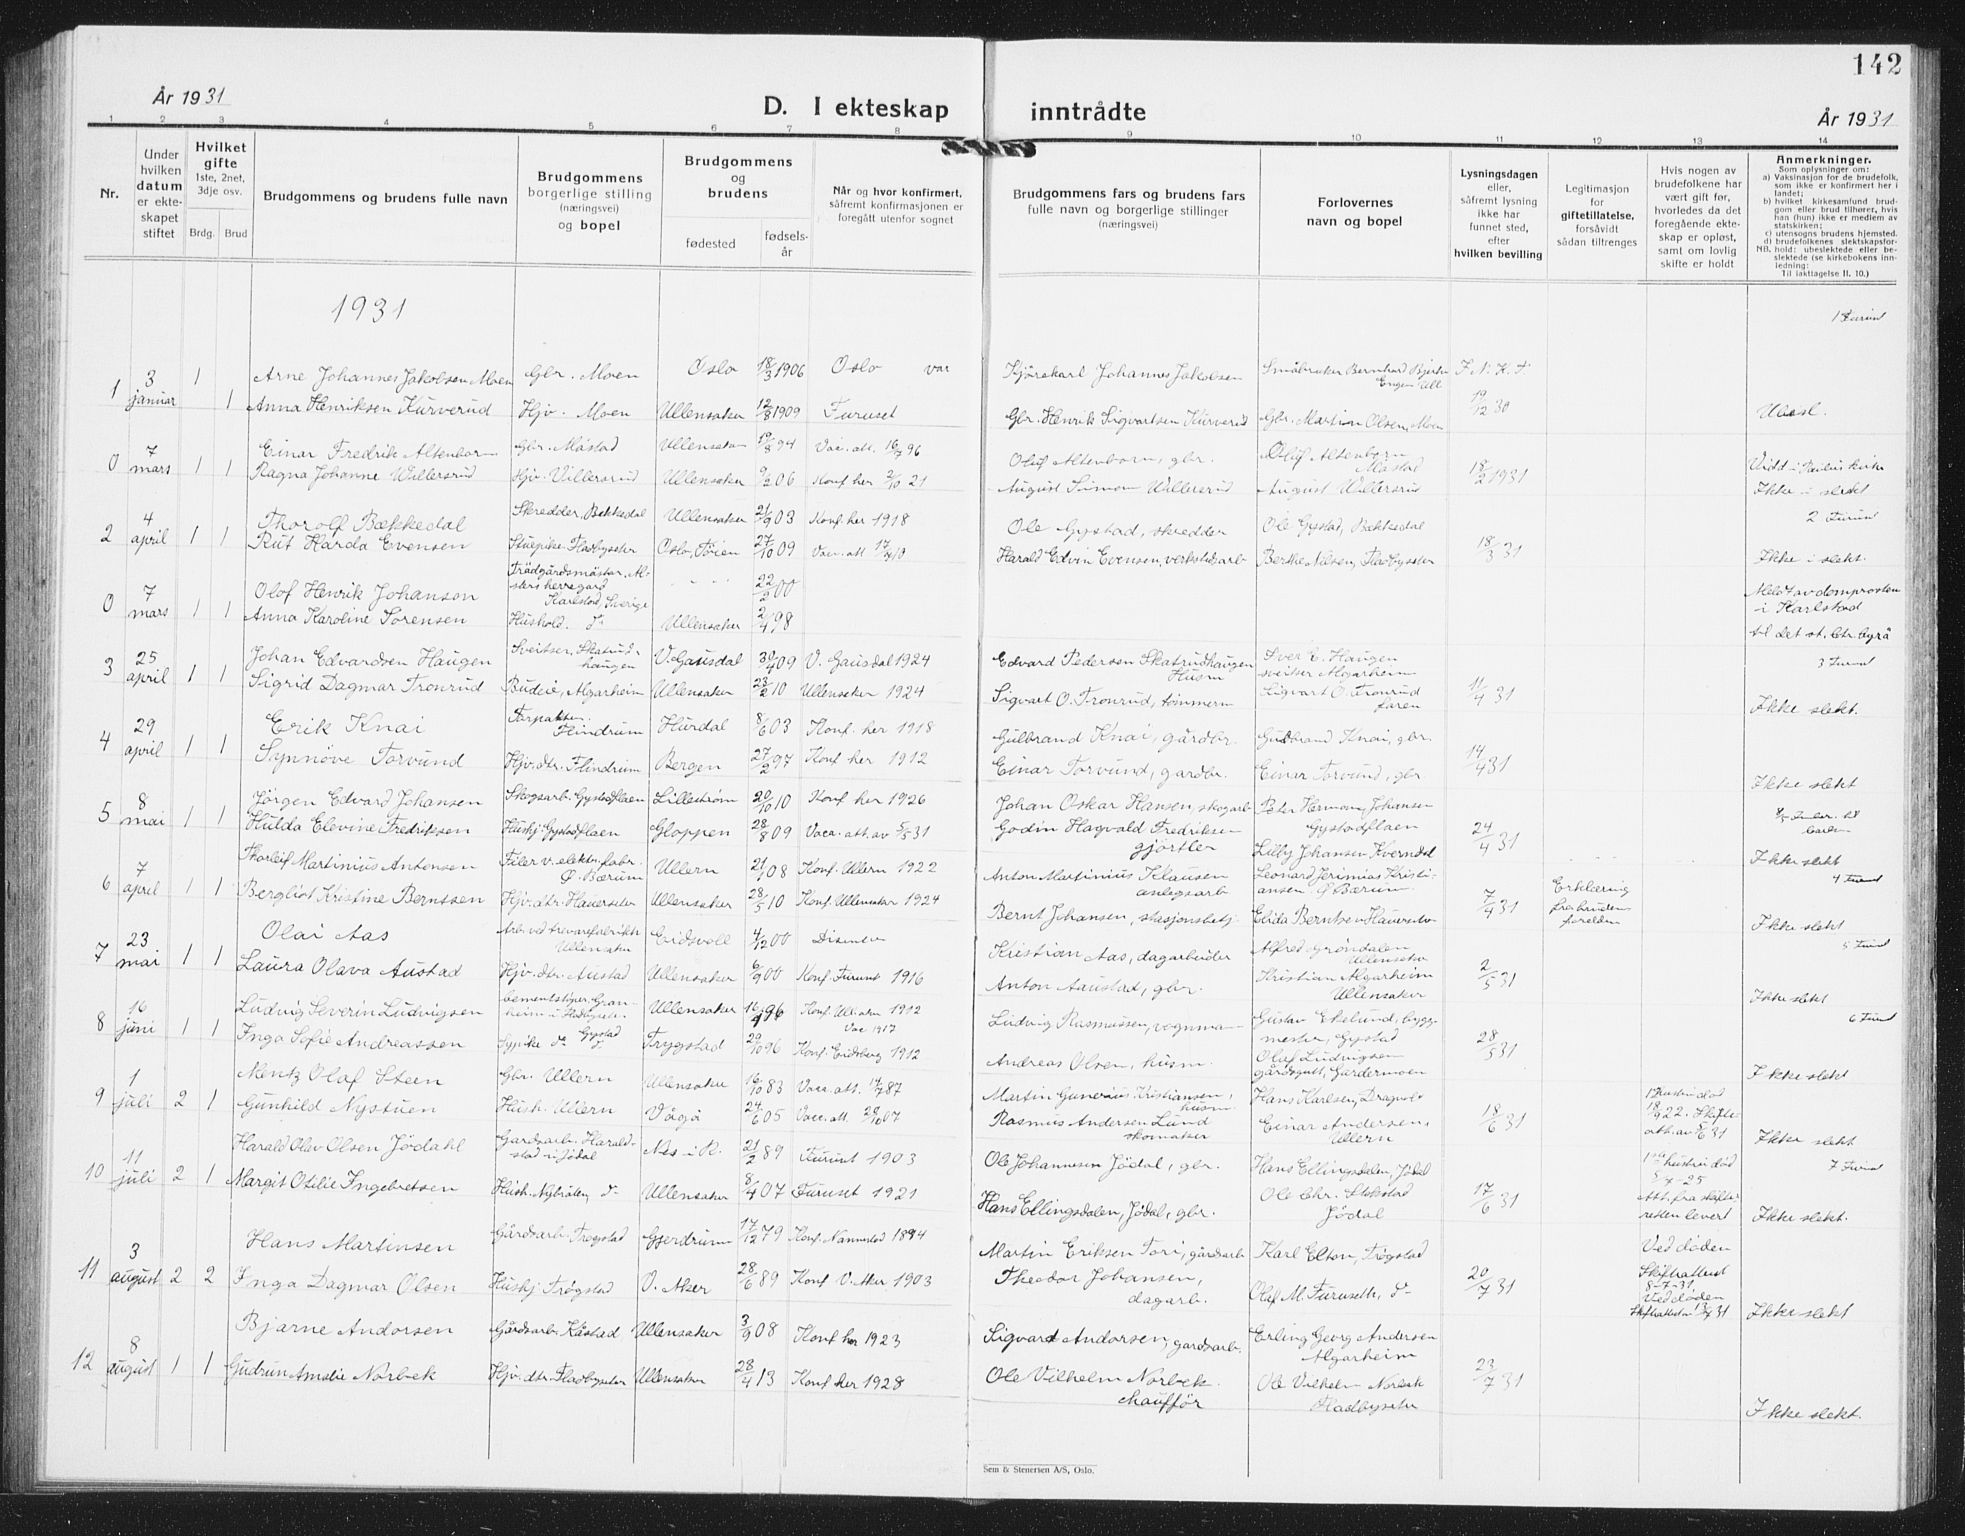 142
År 1931
D. I ekteskap inntrådte
År 1931
1 2 3 4 5 6 7 8 9 10 11 12 13 14
Nr.
Under hvilken datum er ekteskapet stiftet
Hvilket gifte
1ste, 2net, 3dje osv.
Brdg. Brud
Brudgommens og brudens fulle navn
Brudgommens borgerlige stilling (næringsvei) og bopel
Brudgommens og brudens
fødested
fødsels-år
Når og hvor konfirmert, såfremt konfirmasjonen er foregått utenfor sognet
Brudgommens fars og brudens fars fulle navn og borgerlige stillinger (næringsvei)
Forlovernes navn og bopel
Lysningsdagen eller, såfremt lysning ikke har funnet sted, efter hvilken bevilling
Legitimasjon for giftetillatelse, forsåvidt sådan tiltrenges
Hvis nogen av brudefolkene har vært gift før, hvorledes da det foregående ekteskap er opløst, samt om lovlig skifte er holdt
Anmerkninger.
Som oplysninger om:
a) Vaksinasjon for de brudefolk, som ikke er konfirmert her i landet;
b) hvilket kirkesamfund brudgom eller brud tilhører, hvis han (hun) ikke er medlem av statskirken;
c) utensogns brudens hjemsted.
d) brudefolkenes slektskapsforhold: ubeslektede eller beslektede (se kirkebokens innledning:
NB.
Til iakttagelse II. 10.)
1931
1 Furuset
1 3 januar 1 Arne Johannes Jakobsen Moen Gbr. Moen Oslo 18/3 1906 Oslo var Kjørekarl Johannes Jakobsen Småbruker Bernhard
1 Anna Henriksen Kurverud Hjv. Moen Ullensaker 12/8 1909 Furuset Gbr. Henrik Sigvartsen Kurverud Gbr. Martin Olsen, Moen 19/12 30
0 7 mars 1 1 Einar Fredrik Altenborn Gbr. Måstad Ullensaker 19/8 94 Vac. att. 16/7 96 Olof Altenborn, gbr. Olof Altenborn Måstad
Ragna Johanne Willersrud Hjv. Villersrud Ullensaker 9/2 06 Konf her 2/10 21 August Simon Willersrud August Willersrud 18/2 1931 Ikke i slekt
2 Furuset
2 4 april 1 1 Thorolf Bækkedal Skredder, Bekkedal Ullensaker 21/9 03 Konf. her 1918 Ole Gystad, skredder Ole Gystad, Bækkedal
Rut Harda Evensen Stuepike, Fladbyseter Oslo, Tøien 27/10 09 Vacc. att Harald Edvin Evensen, verkstedarb Berthe Nilsen, Fladbyseter 18/3 31 Ikke i slekt.
0 7 mars 1 1 Olof Henrik Johanson Trädgårdsmästar, herregård Karlstad, Sverige 22/2 00 Meldt av domprosten i Karlstad
Anna Karoline Sørensen Hushold. do Ullensaker 2/4 98 til det st. ctr. byrå
3 Furuset
3 25 april 1 1 Johan Edvardsen Haugen Sveitser, Skatrudhaugen V. Gausdal 30/4 09 V. Gausdal 1924 Edvard Pedersen Skatrudhaugen Husm Sver E. Haugen sveitser Algarheim
Sigrid Dagmar Tronrud Budeie, Algarheim Ullensaker 23/2 10 Ullensaker 1924 Sigvart O. Tronrud, tømmerm Sigvart O. Tronrud faren 11/4 31 Ikke slekt.
4 29 april 1 1 Erik Knai Forpakter, Flindrum Hurdal 8/6 03 Konf. her 1918 Gulbrand Knai, gårdbr. Gulbrand Knai, gbr.
Synnøve Torvund Hjv. dtr. Flindrum Bergen 27/2 97 Konf her 1912 Einar Torvund, gardbr. Einar Torvund, gbr 14/4 31 Ikke slekt
5 8 mai 1 1 Jørgen Edvard Johansen Skogsarb. Gystadflaen Lillestrøm 20/10 10 Konf her 1926 Johan Oskar Hansen, skogarb Peter Hermon Johansen Gystadflaen
Hulda Elevine Fredriksen Hushj. Gystadflaen Gloppen 28/8 09 Vacc. att. av 5/5 31 Godin Hagvald Fredriksen gjørtler Lilly Johansen Kverndal 24/4 31 Ikke slekt
4 Furuset
6 7 april 1 1 Thorleif Martinius Antonsen Filer v. elektr. fabr. Ø. Bærum Ullern 21/1 08 Konf. Ullern 1922 Anton Martinius Klausen anlegsarb Leonard Jerimias Kristiansen Ø Bærum
Bergliot Kristine Berntsen Hjv. dtr. Hauerseter Ullensaker 28/5 10 Konf. Ullensaker 1924 Bernt Johansen, stasjonsbetj. Elida Berntsen Hauerseter 7/4 31 Erklæring fra brudens forelder Ikke slekt
5 Furuset
7 23 mai 1 1 Olai Aas Arb. ved trevarefabrikk Ullensaker Eidsvoll 4/12 00 Disenter Kristian Aas, dagarbeider Alfred Grøndalen Ullensaker
Laura Olava Austad Hjv. dtr. Austad Ullensaker 6/9 00 Konf. Furuset 1916 Anton Aaustad, gbr. Kristian Algarheim Ullensaker 2/5 31 Ikke slekt
6 Furuset
8 16 juni 1 1 Ludvig Severin Ludvigsen Ullensaker 96 1912 Vac 1917 Ludvig Rasmussen, vognma- Gustav Ekelund, byggmester, Gystad
Inga Sofie Andreassen Sypike do Gystad Trygstad 20/10 96 Konf. Eidsberg 1912 Andreas Olsen, husm. Olaf Ludvigsen gårdsgutt, Gardermoen 28/5 31 Ikke slekt
9 1 juli 2 1 Mentz Olaf Steen Gbr. Ullern Ullensaker 16/10 83 Vacc. att. 14/7 87 Martin Gunerius Kristiansen, husm Hans Karlsen, Dragvol 1 hustru død
Gunhild Nystuen Hush. Ullern Vågå 24/6 05 Vacc. att. 28/10 07 Rasmus Andersen Lund skomaker Einar Andersen, Ullern 18/6 31 Ikke slekt
7 Furuset
10 11 juli 2 1 Harald Olav Olsen Jödahl Gardsarb. Haraldstad i Jødal Nes i R. 21/2 89 Furuset 1903 Ole Johannesen Jödal, gbr. Hans Ellingsdalen, Jødal 1ste hustru død
Margit Otilie Ingebretsen Hush. do Ullensaker 8/4 07 Furuset 1921 Hans Ellingsdalen, Jødal, gbr. Ole Chr. Jödal 17/6 31 Att. fra skifteretten levert Ikke slekt.
11 3 august 2 2 Hans Martinsen Gårdsarb. Trøgstad Gjerdrum 17/12 79 Konf. Nannestad 1894 Martin Eriksen Tori, gårdsarb Karl Elton, Trøgstad Ved døden Skifteattest 8-7-31
Inga Dagmar Olsen Hushj Trøgstad V. Aker 28/6 89 Konf V. Aker 1903 Theodor Johansen, dagarb. Olaf M. Furuseth, do 20/7 31 Ved døden Skifteattester 13/7 31 Ikke slekt
12 8 august 1 1 Bjarne Andorsen Gårdsarb Kåstad Ullensaker 3/9 08 Konf her 1923 Sigvard Andorsen, gardsarb. Erling Georg Andersen Algarheim
Gudrun Amalie Norbek Hjv. dtr. Fladbyseter Ullensaker 28/4 13 Konf her 1928 Ole Vilhelm Norbek chauffør Ole Vilhelm Norbek Fladbyseter 23/7 31 Ikke slekt.
Sem & Stenersen A/S, Oslo.